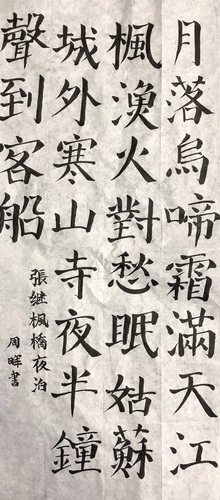 月落烏啼霜滿天江
楓漁火對愁眠姑蘇
城外寒山寺夜半鐘
聲到客船
張継楓橋夜泊
周暉書